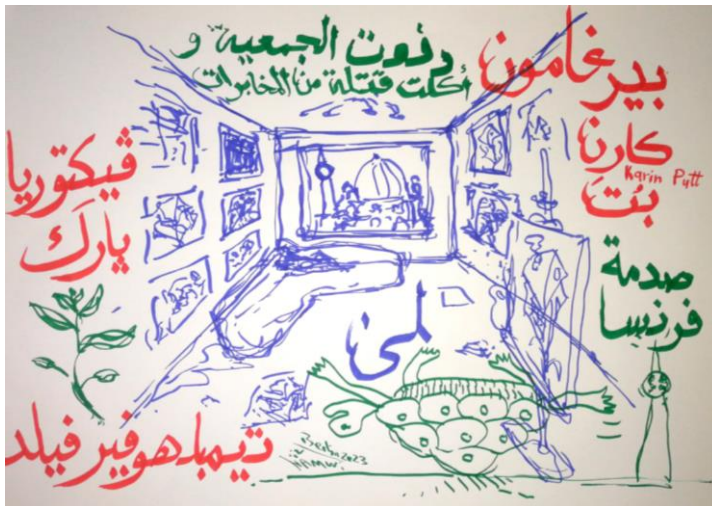 دفوت الجمعية و
أكلت قتلة من المخابرات
بيرغامون
كارن
Karin Putt
بُت
ڤيكتوريا
پارك
صدمة
فرنسا
لمى
تيمپلهوفير فيلد